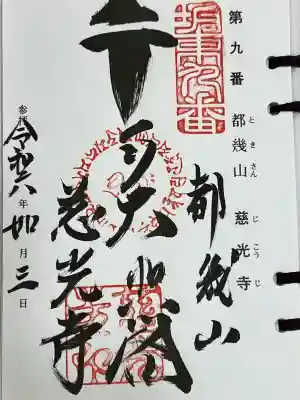 第九番 都幾山 慈光寺
とき さん じ こう じ
坂東九番
都幾山
大悲閣
慈光寺
参拝 令和六年如月三日